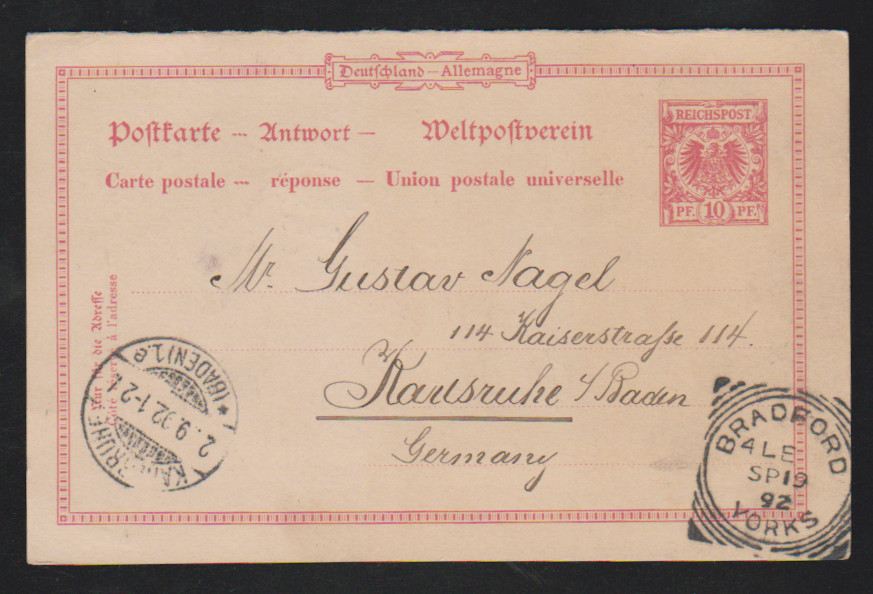 Deutschland – Allemagne
Postkarte — Antwort — Weltpostverein
Carte postale — réponse — Union postale universelle
REICHSPOST
PF. 10 PF.
Mr. Gustav Nagel
114 Kaiserstraße 114.
Karlsruhe i/Baden
Germany
Nur für die Adresse
Côté réservé à l'adresse
KARLSRUHE
2 .9.92.1-2
* (BADEN) 1.e
BRADFORD
4 LE
SP 19
92
YORKS